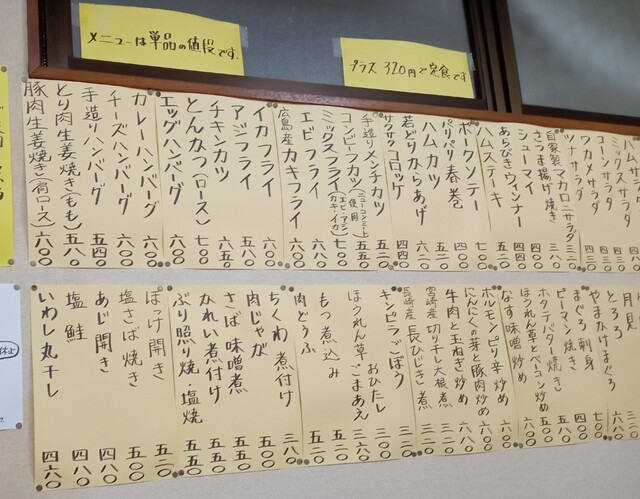 メニューは単品の値段です。
プラス320円で定食です
ハムサラダ
ミックスサラダ
コーンサラダ
ワカメサラダ 四三〇
ツナサラダ 四三〇
自家製マカロニサラダ 三二〇
さつま揚げ焼き 三八〇
シューマイ 四四〇
あらびきウィンナー
ハムステーキ
ポークソテー 七〇〇
パリパリ春巻 四〇〇
ハムカツ 五二〇
若どりからあげ 六二〇
サクサクコロッケ 四四〇
手造りメンチカツ 五二〇
コンビーフカツ(ニューコンミート使用) 五五〇
ミックスフライ(エビ・アジ・カキ・イカ) 七〇〇
エビフライ 六〇〇
広島産カキフライ 六〇〇
イカフライ 六〇〇
アジフライ 五八〇
チキンカツ 六五〇
とんかつ(ロース) 七〇〇
エッグハンバーグ 六〇〇
カレーハンバーグ 六〇〇
チーズハンバーグ 六〇〇
手造りハンバーグ 五四〇
とり肉生姜焼き(もも) 五八〇
豚肉生姜焼き(肩ロース) 六〇〇
月見
とろろ 三二〇
やまかけまぐろ 六〇〇
まぐろ刺身 七〇〇
ピーマン焼き 四〇〇
ホタテバター焼き 五八〇
ほうれん草とベーコン炒め 五〇〇
なす味噌炒め 五〇〇
ホルモンピリ辛炒め 六〇〇
にんにくの芽と豚肉炒め 六〇〇
牛肉と玉ねぎ炒め 六八〇
宮崎産切り干し大根煮 三二〇
長崎産長ひじき煮 三二〇
キンピラごぼう 三二〇
おひたし 三二〇
ほうれん草ごまあえ 三六〇
もつ煮込み 五二〇
肉どうふ 五二〇
ちくわ煮付け 三八〇
肉じゃが 五〇〇
さば味噌煮 五五〇
かれい煮付け 五五〇
ぶり照り焼・塩焼 五五〇
ほっけ開き 五二〇
塩さば焼き 五〇〇
あじ開き 四八〇
塩鮭 四八〇
いわし丸干し 四六〇